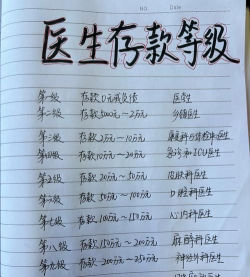 NO
Date
医生存款等级
第一级 存款0元或负债 医学生
第二级 存款5000元~2万元 乡镇医生
第三级 存款2万元~10万元 康复科与体检中心医生
第四级 存款10万元~20万元 急诊和ICU医生
第五级 存款20万元~50万元 皮肤科医生
第六级 存款50万元~100万元 口腔科医生
第七级 存款100万元~150万元 心内科医生
第八级 存款150万元~200万元 麻醉科医生
第九级 存款200万元~250万元 神经外科医生